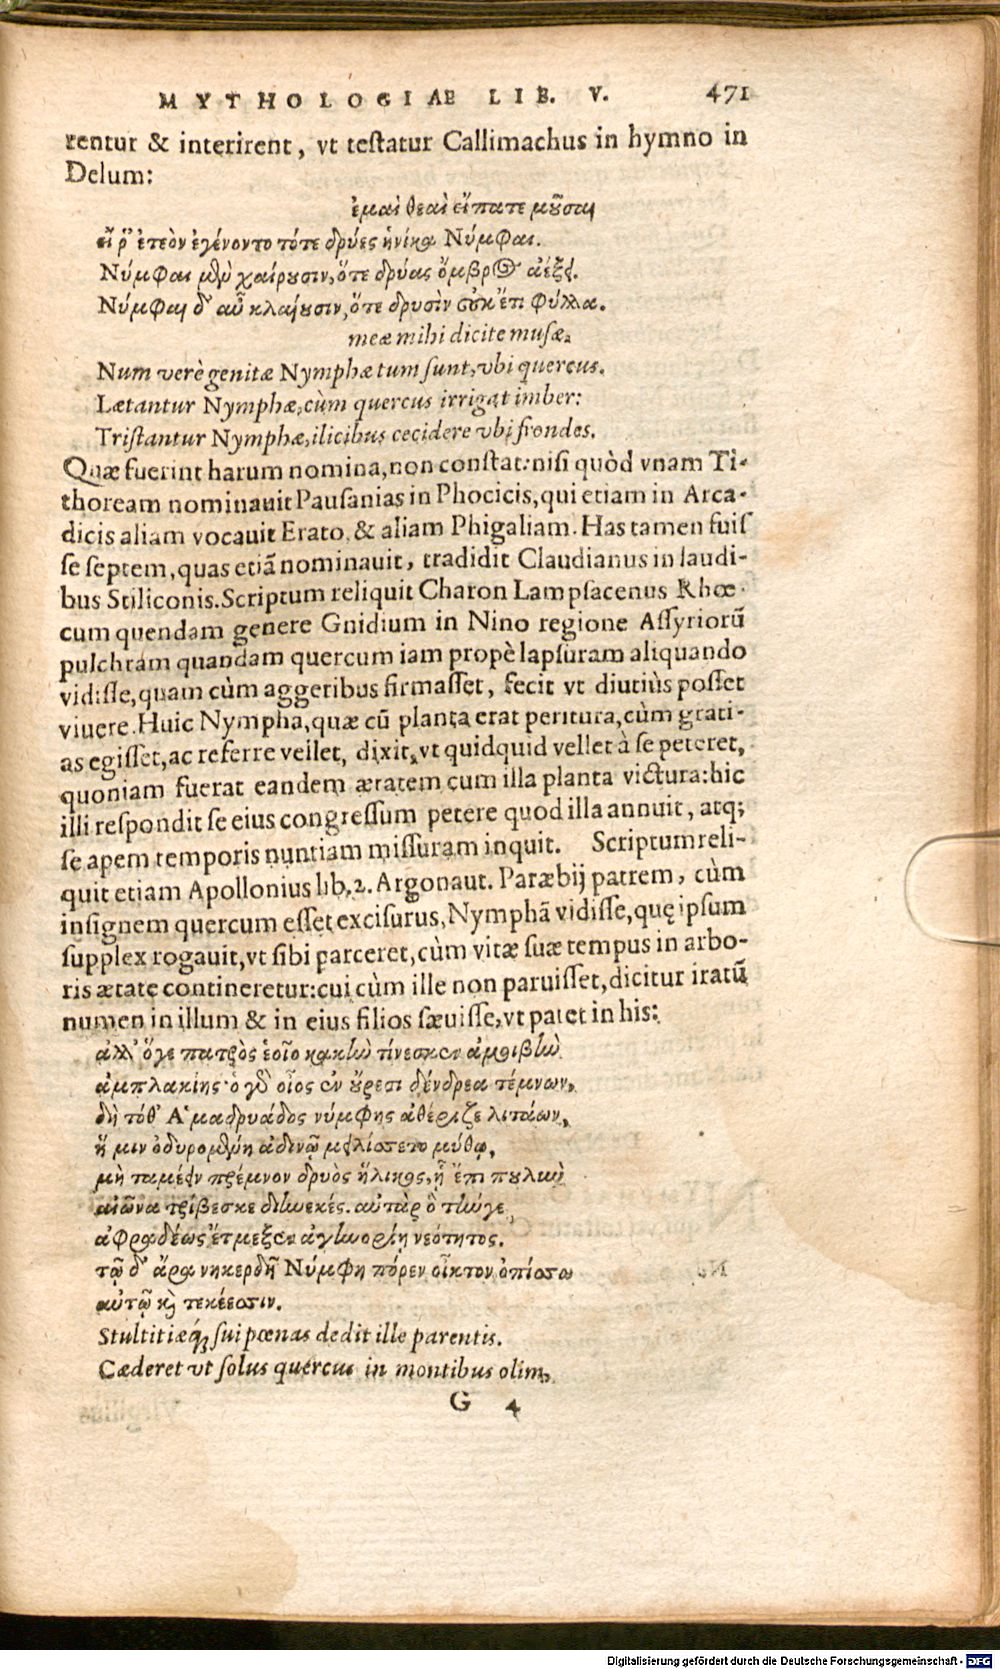 MYTHOLOGIAE LIB. V. 471
rentur & interirent, vt testatur Callimachus in hymno in
Delum:
ἐμαὶ θεαὶ εἴπατε μοῦσαι
εἴ ῥ' ἐτεὸν ἐγένοντο τότε δρύες ἡνίκα Νύμφαι.
Νύμφαι μὲν χαίρουσιν, ὅτε δρύας ὄμβρος ἀέξει.
Νύμφαι δ' αὖ κλαίουσιν, ὅτε δρυσὶν οὐκ ἔτι φύλλα.
meæ mihi dicite musæ.
Num verè genitæ Nymphæ tum sunt, vbi quercus.
Lætantur Nymphæ, cùm quercus irrigat imber:
Tristantur Nymphæ, ilicibus cecidere vbi frondes.
Quæ fuerint harum nomina, non constat: nisi quòd vnam Ti-
thoream nominauit Pausanias in Phocicis, qui etiam in Arca-
dicis aliam vocauit Erato, & aliam Phigaliam. Has tamen fuis
se septem, quas etiã nominauit, tradidit Claudianus in laudi-
bus Stiliconis. Scriptum reliquit Charon Lampsacenus Rhœ-
cum quendam genere Gnidium in Nino regione Assyriorũ
pulchram quandam quercum iam propè lapsuram aliquando
vidisse, quam cùm aggeribus firmasset, fecit vt diutiùs posset
viuere. Huic Nympha, quæ cũ planta erat peritura, cùm grati-
as egisset, ac referre vellet, dixit, vt quidquid vellet à se peteret,
quoniam fuerat eandem ætatem cum illa planta victura: hic
illi respondit se eius congressum petere quod illa annuit, atq;
se apem temporis nuntiam missuram inquit. Scriptum reli-
quit etiam Apollonius lib. 2. Argonaut. Paræbij patrem, cùm
insignem quercum esset excisurus, Nymphã vidisse, quę ipsum
supplex rogauit, vt sibi parceret, cùm vitæ suæ tempus in arbo-
ris ætate contineretur: cui cùm ille non paruisset, dicitur iratũ
numen in illum & in eius filios sæuisse, vt patet in his:
ἀλλ' ὅγε πατρὸς ἑοῖο κακὴν τίνεσκεν ἀμοιβὴν
ἀμπλακίης· ὁ γὰρ οἶος ἐν οὔρεσι δένδρεα τέμνων,
δή τόθ' Ἁμαδρυάδος νύμφης ἀθέριζε λιτάων,
ἥ μιν ὀδυρομένη ἀδινῷ μειλίσσετο μύθῳ,
μὴ ταμέειν πρέμνον δρυὸς ἥλικος, ᾗ ἔπι πουλὺν
αἰῶνα τρίβεσκε διηνεκές. αὐτὰρ ὃ τήνγε
ἀφραδέως ἔτμεξεν ἀγηνορίῃ νεότητος.
τῷ δ' ἄρα νηκερδῆ Νύμφη πόρεν οἶκτον ὀπίσσω
αὐτῷ καὶ τεκέεσσιν.
Stultitiæq́; sui pœnas dedit ille parentis.
Cæderet vt solus quercus in montibus olim,
G 4
Digitalisierung gefördert durch die Deutsche Forschungsgemeinschaft - DFG